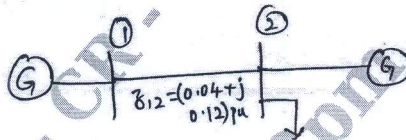 ① ②
G G
z₁₂=(0.04+j
0.12)pu